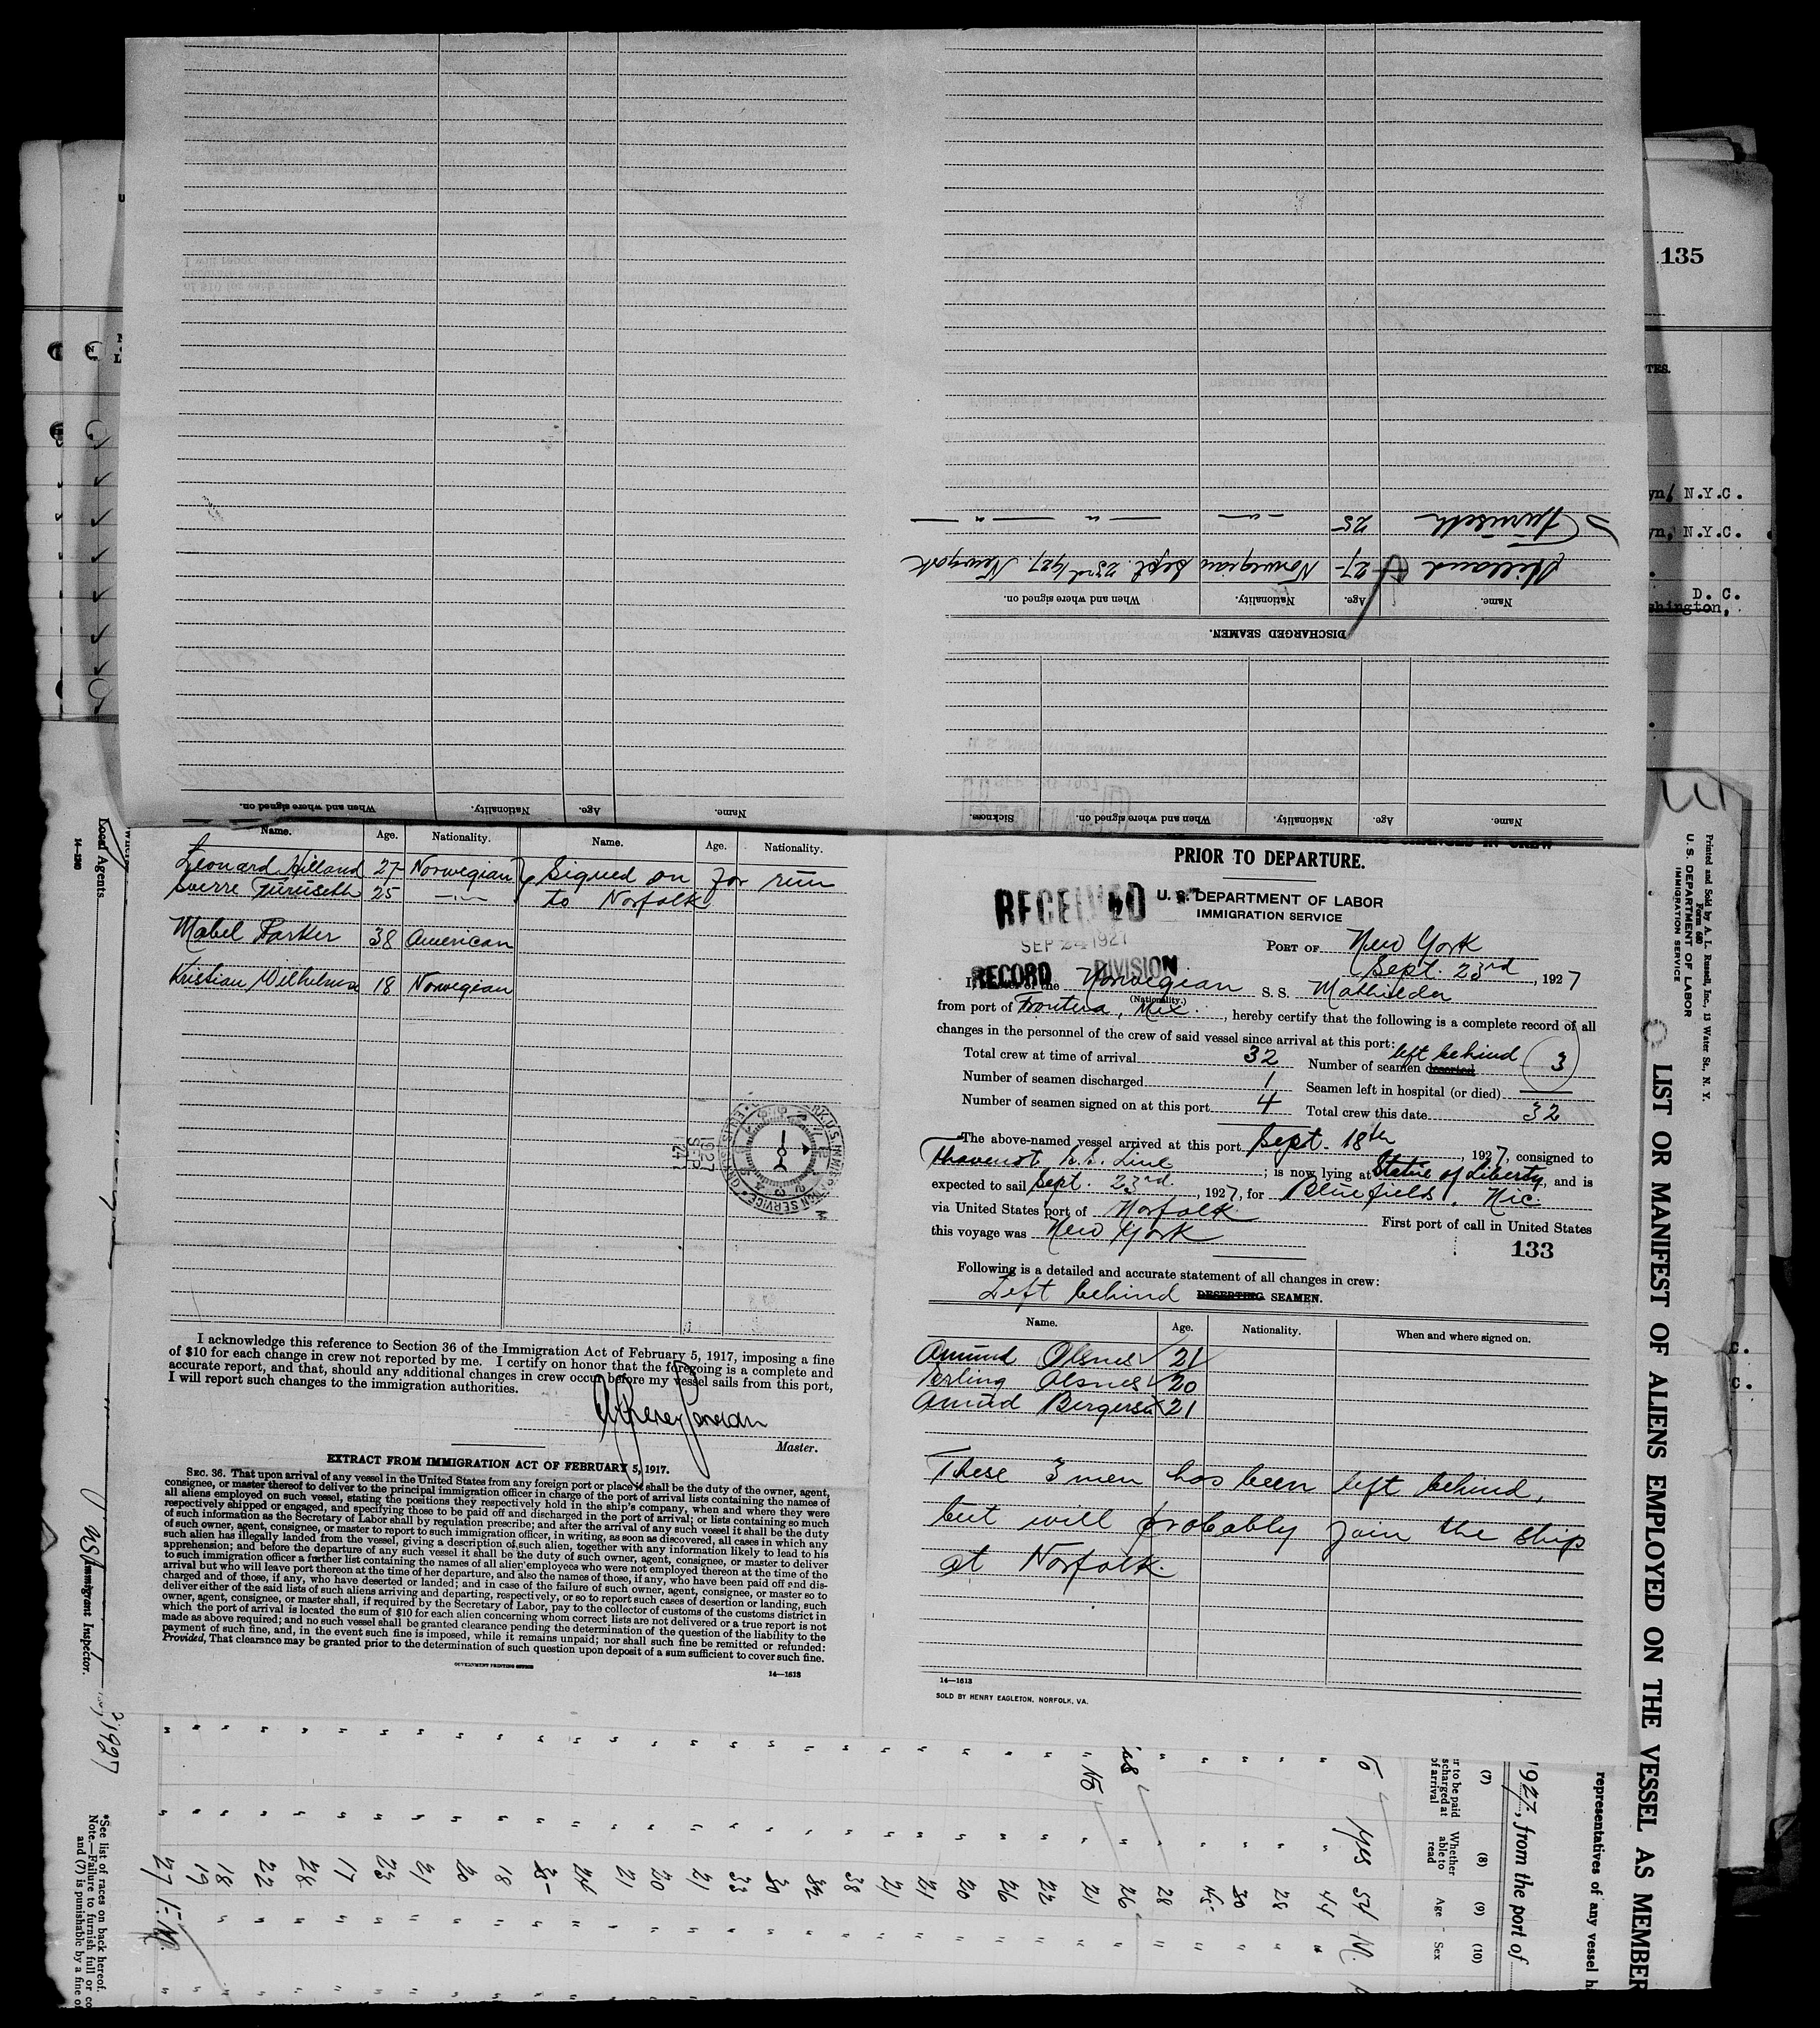 135
TES.
yn, N.Y.C.
yn, N.Y.C.
D. C.
shington,
Furuseth 25 —"— —"— —"—
Hilland 27 Norwegian Sept. 23rd/27. Newyork
Name. Age. Nationality. When and where signed on.
DISCHARGED SEAMEN.
Name. Age. Nationality. When and where signed on. Sickness.
Name. Age. Nationality. When and where signed on.
Name. Age. Nationality. Name. Age. Nationality.
Leonard Hilland 27 Norwegian } Signed on for run
Sverre Furuseth 25 —"— to Norfolk
Mabel Parker 38 American
Kristian Wilhelmsen 18 Norwegian
1927
SEP
24
I acknowledge this reference to Section 36 of the Immigration Act of February 5, 1917, imposing a fine
of $10 for each change in crew not reported by me. I certify on honor that the foregoing is a complete and
accurate report, and that, should any additional changes in crew occur before my vessel sails from this port,
I will report such changes to the immigration authorities.
Master.
EXTRACT FROM IMMIGRATION ACT OF FEBRUARY 5, 1917.
SEC. 36. That upon arrival of any vessel in the United States from any foreign port or place it shall be the duty of the owner, agent,
consignee, or master thereof to deliver to the principal immigration officer in charge of the port of arrival lists containing the names of
all aliens employed on such vessel, stating the positions they respectively hold in the ship's company, when and where they were
respectively shipped or engaged, and specifying those to be paid off and discharged in the port of arrival; or lists containing so much
of such information as the Secretary of Labor shall by regulation prescribe; and after the arrival of any such vessel it shall be the duty
of such owner, agent, consignee, or master to report to such immigration officer, in writing, as soon as discovered, all cases in which any
such alien has illegally landed from the vessel, giving a description of such alien, together with any information likely to lead to his
apprehension; and before the departure of any such vessel it shall be the duty of such owner, agent, consignee, or master to deliver
to such immigration officer a further list containing the names of all alien employees who were not employed thereon at the time of the
arrival but who will leave port thereon at the time of her departure, and also the names of those, if any, who have been paid off and dis-
charged and of those, if any, who have deserted or landed; and in case of the failure of such owner, agent, consignee, or master so to
deliver either of the said lists of such aliens arriving and departing, respectively, or so to report such cases of desertion or landing, such
owner, agent, consignee, or master shall, if required by the Secretary of Labor, pay to the collector of customs of the customs district in
which the port of arrival is located the sum of $10 for each alien concerning whom correct lists are not delivered or a true report is not
made as above required; and no such vessel shall be granted clearance pending the determination of the question of the liability to the
payment of such fine, and, in the event such fine is imposed, while it remains unpaid; nor shall such fine be remitted or refunded:
Provided, That clearance may be granted prior to the determination of such question upon deposit of a sum sufficient to cover such fine.
GOVERNMENT PRINTING OFFICE
14—1613
PRIOR TO DEPARTURE.
U. S. DEPARTMENT OF LABOR
IMMIGRATION SERVICE
RECEIVED
SEP 24 1927
RECORD DIVISION
PORT OF New York
Sept. 23rd, 1927
of the Norwegian S. S. Mathilda
(Nationality.)
from port of Frontera, Mex., hereby certify that the following is a complete record of all
changes in the personnel of the crew of said vessel since arrival at this port:
Total crew at time of arrival 32 Number of seamen deserted left behind 3
Number of seamen discharged 1 Seamen left in hospital (or died)
Number of seamen signed on at this port 4 Total crew this date 32
The above-named vessel arrived at this port Sept. 18th, 1927, consigned to
Thavenot S.S. Line; is now lying at Statue of Liberty, and is
expected to sail Sept. 23rd, 1927, for Bluefields, Nic.
via United States port of Norfolk First port of call in United States
this voyage was New York
133
Following is a detailed and accurate statement of all changes in crew:
Left behind DESERTING SEAMEN.
Name. Age. Nationality. When and where signed on.
Amund Olsnes 21
Erling Olsnes 20
Amund Bergersen 21
These 3 men has been left behind,
but will probably join the ship
at Norfolk
14—1613
SOLD BY HENRY EAGLETON, NORFOLK, VA.
Printed and Sold by A. L. Russell, Inc., 13 Water St., N. Y.
Form 680
U. S. DEPARTMENT OF LABOR
IMMIGRATION SERVICE
LIST OR MANIFEST OF ALIENS EMPLOYED ON THE VESSEL AS MEMBER
representatives of any vessel h
1927, from the port of
(7) (8) (9) (10)
r to be paid
scharged at
of arrival
Whether
able to
read
Age
Sex
No Yes 54 M.
44
28
30
45
28
26
No 21
22
26
20
21
21
38
32
30
33
21
20
21
26
35
18
20
21
23
17
28
22
18
19
27 F.
Local Agents
14—1240
Immigrant Inspector.
1927
*See list of races on back hereof.
Note.—Failure to furnish full or co
and (7) is punishable by a fine o